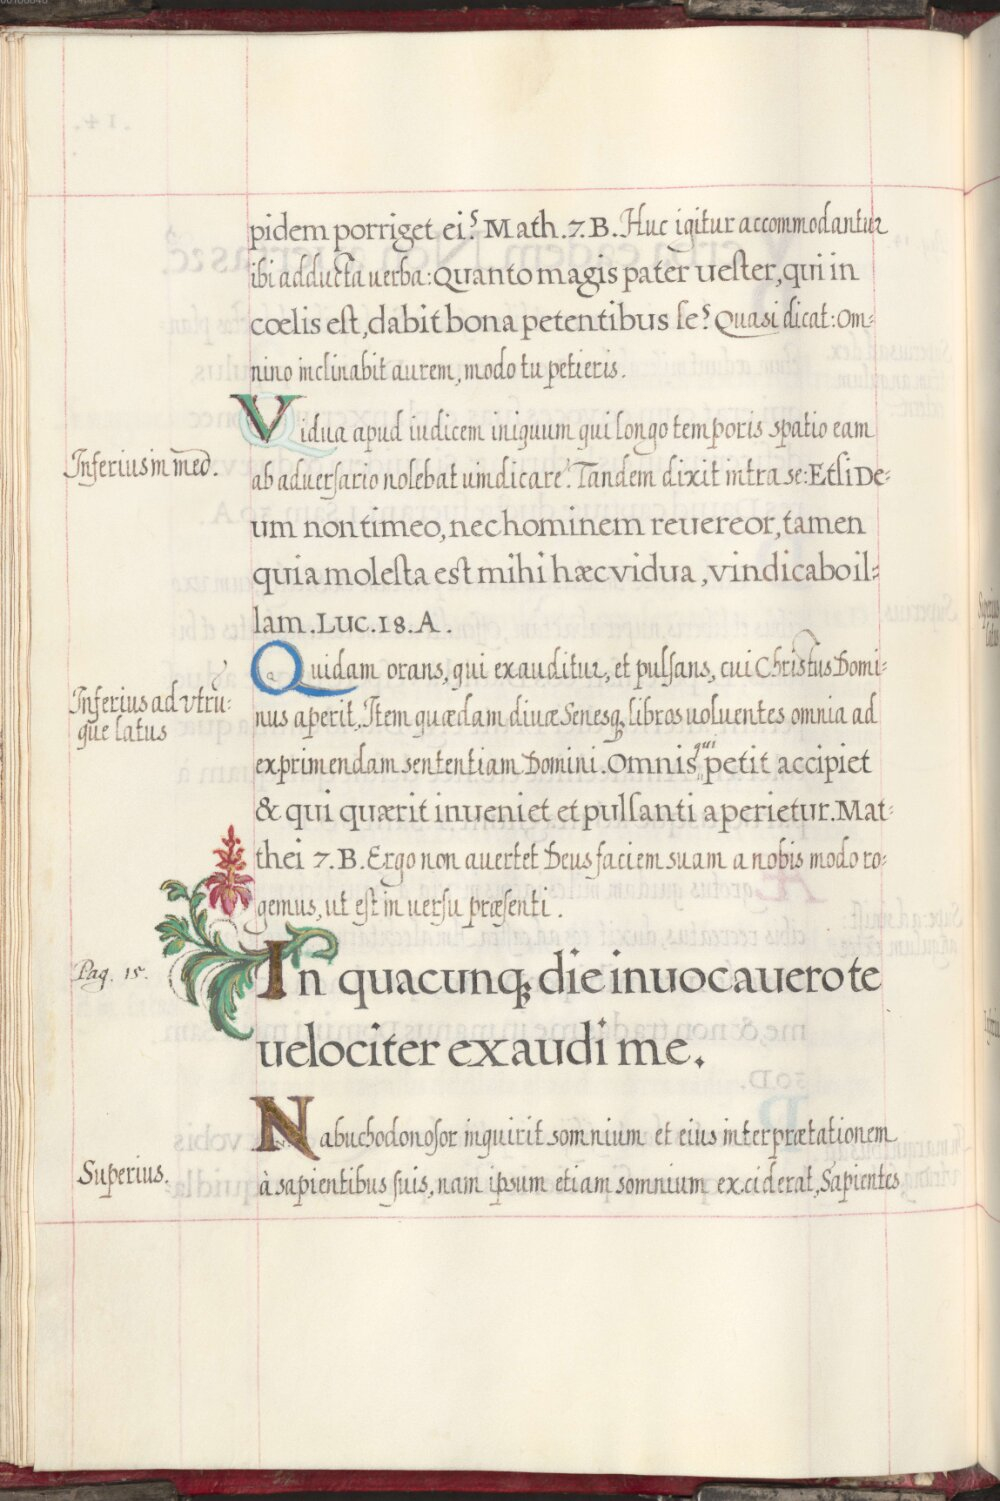 pidem porriget ei? Math. 7. B. Huc igitur accommodantur
ibi adducta uerba: Quanto magis pater uester, qui in
cœlis est, dabit bona petentibus se? Quasi dicat: Om=
nino inclinabit aurem, modo tu petieris.
Inferius in med.
Vidua apud iudicem iniquum qui longo temporis spatio eam
ab aduersario nolebat uindicare. Tandem dixit intra se: Etsi De=
um non timeo, nec hominem reuereor, tamen
quia molesta est mihi hæc vidua, vindicabo il=
lam. Luc. 18. A.
Inferius ad vtrũ=
que latus
Quidam orans, qui exauditur, et pulsans, cui Christus Domi=
nus aperit. Item quædam diuæ Senesq, libros uoluentes omnia ad
exprimendam sententiam Domini. Omnis qui petit accipiet
& qui quærit inueniet et pulsanti aperietur. Mat=
thei 7. B. Ergo non auertet Deus faciem suam a nobis modo ro=
gemus, ut est in uersu præsenti.
Pag. 15.
In quacunq; die inuocauero te
uelociter exaudi me.
Superius.
Nabuchodonosor inquirit somnium et eius interprætationem
à sapientibus suis, nam ipsum etiam somnium exciderat, Sapientes